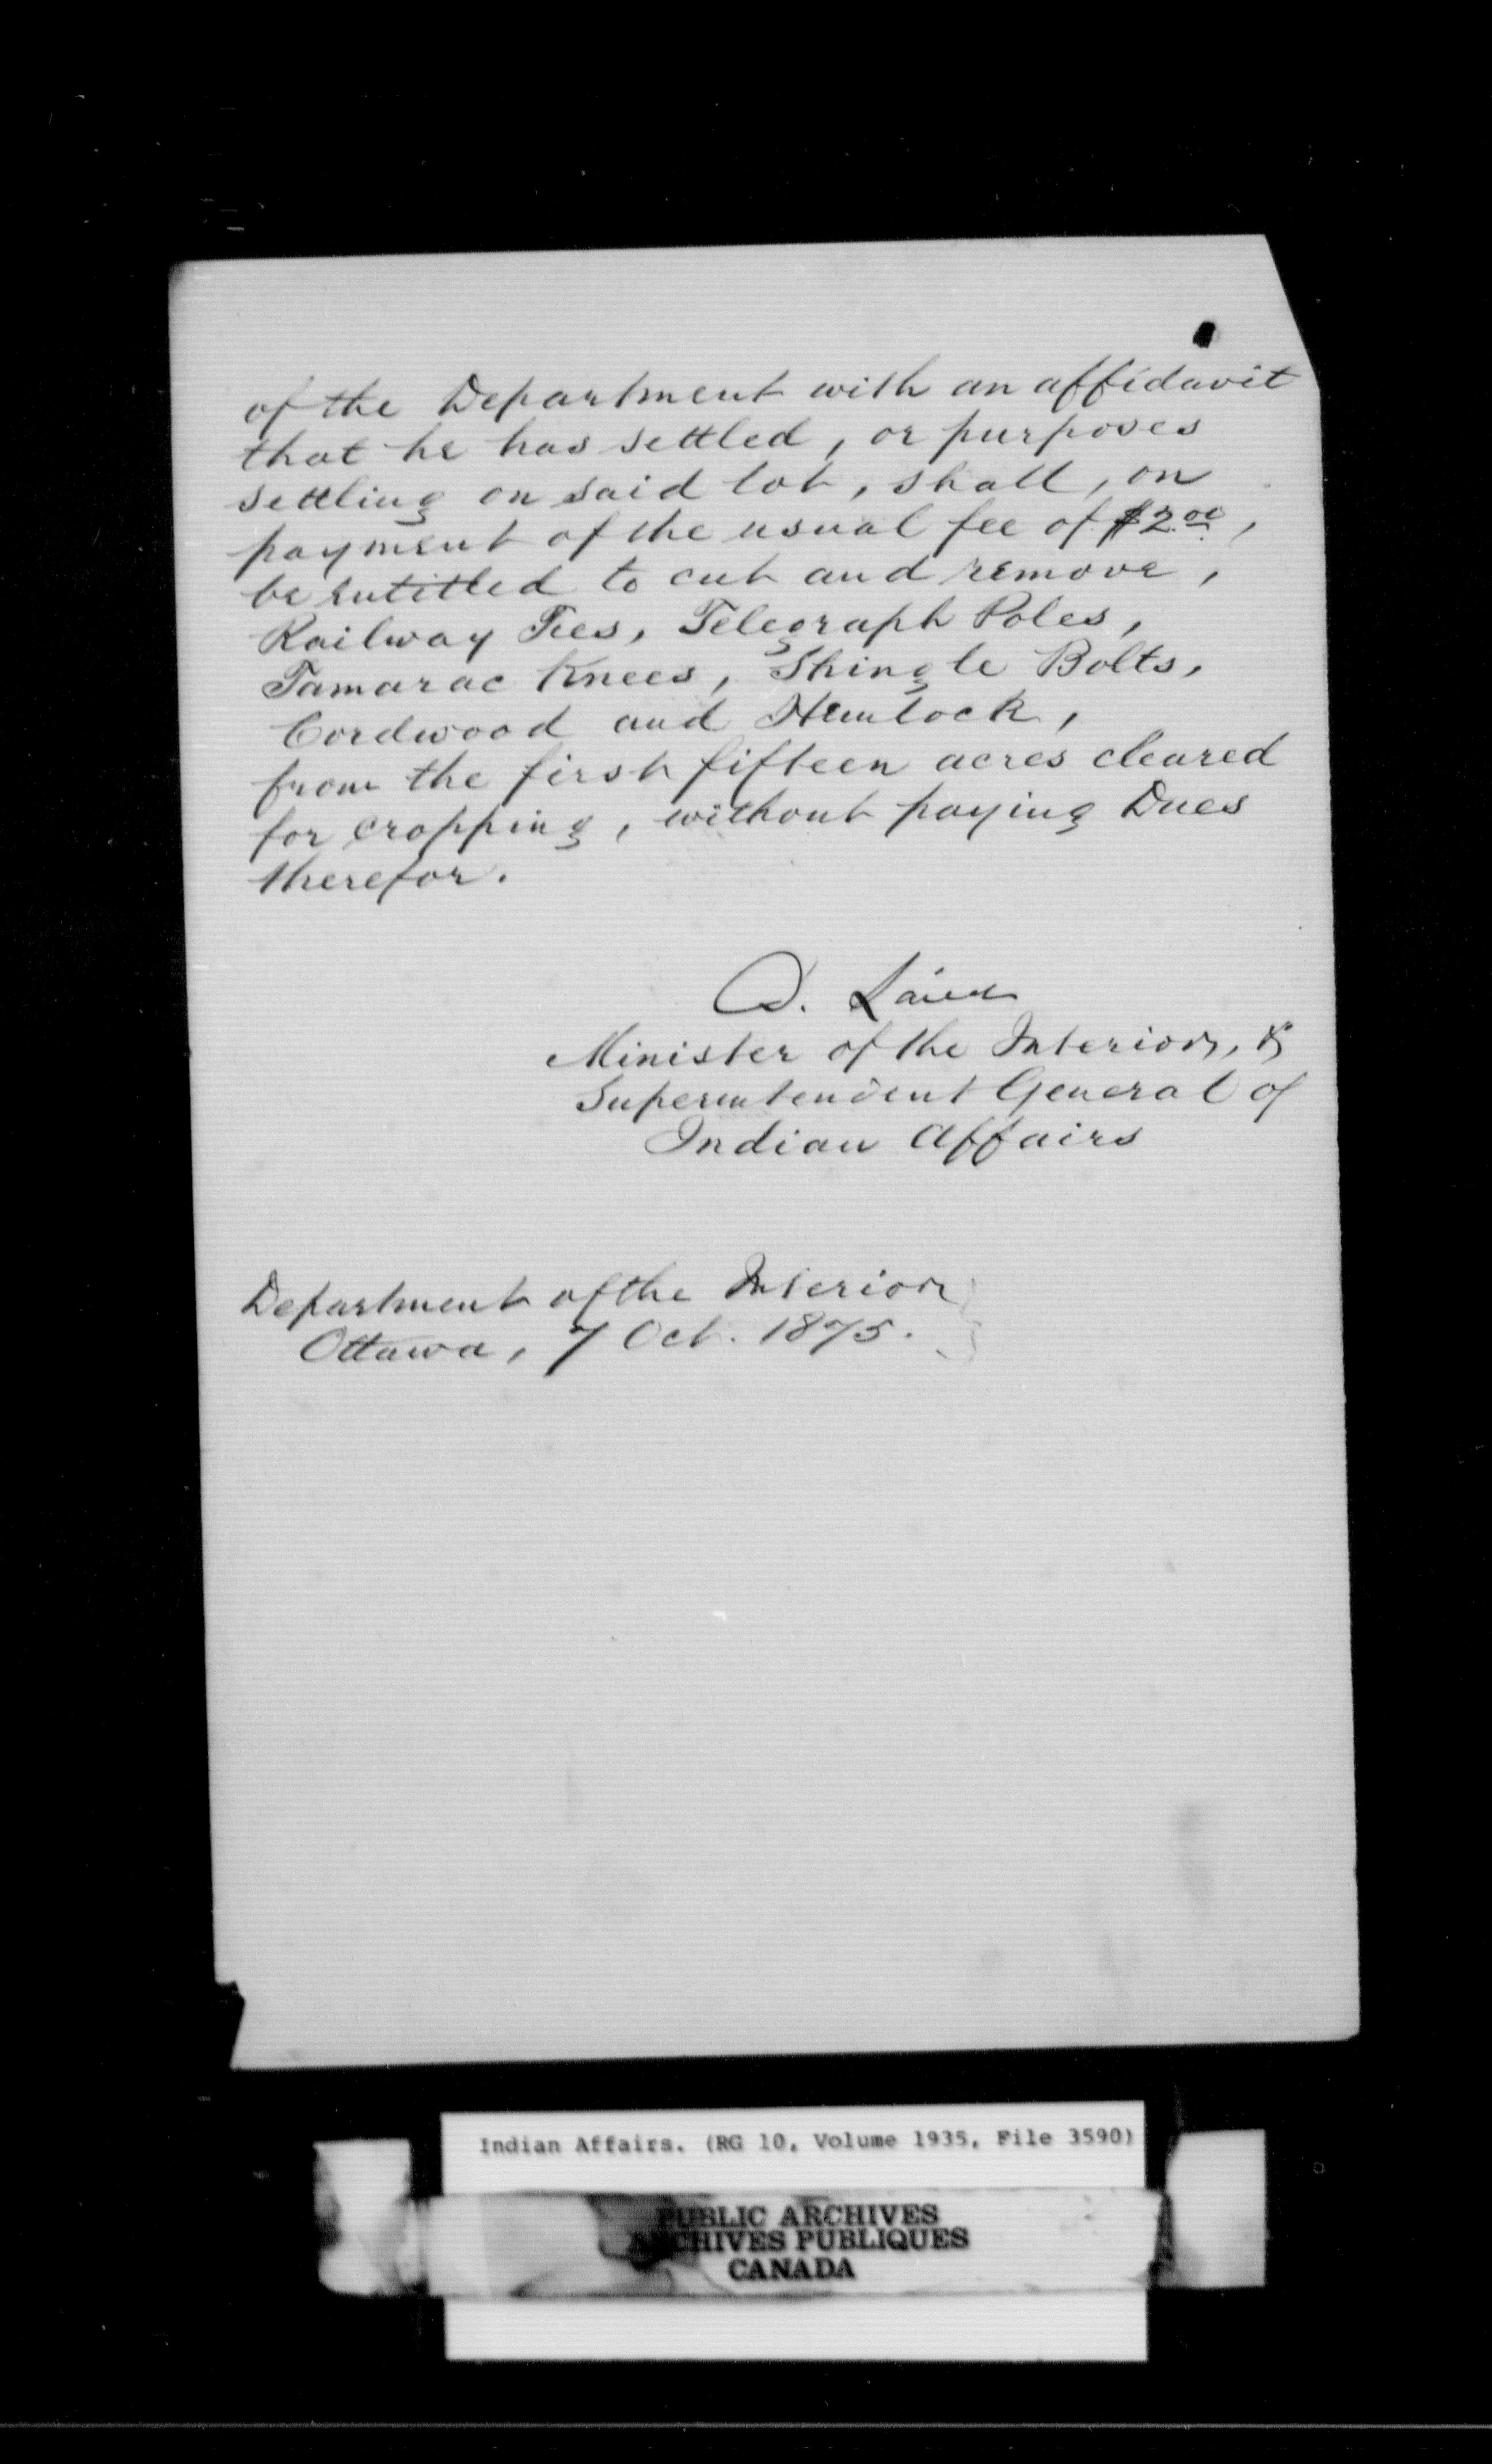 of the Department with an affidavit
that he has settled, or purposes
settling on said lot, shall, on
payment of the usual fee of $2.00,
be entitled to cut and remove,
Railway Ties, Telegraph Poles,
Tamarac Knees, Shingle Bolts,
Cordwood and Hemlock,
from the first fifteen acres cleared
for cropping, without paying Dues
therefor.
D. Laird
Minister of the Interior, &
Superintendent General of
Indian Affairs
Department of the Interior
Ottawa, 7 Oct. 1875.
Indian Affairs. (RG 10, Volume 1935, File 3590)
PUBLIC ARCHIVES
ARCHIVES PUBLIQUES
CANADA